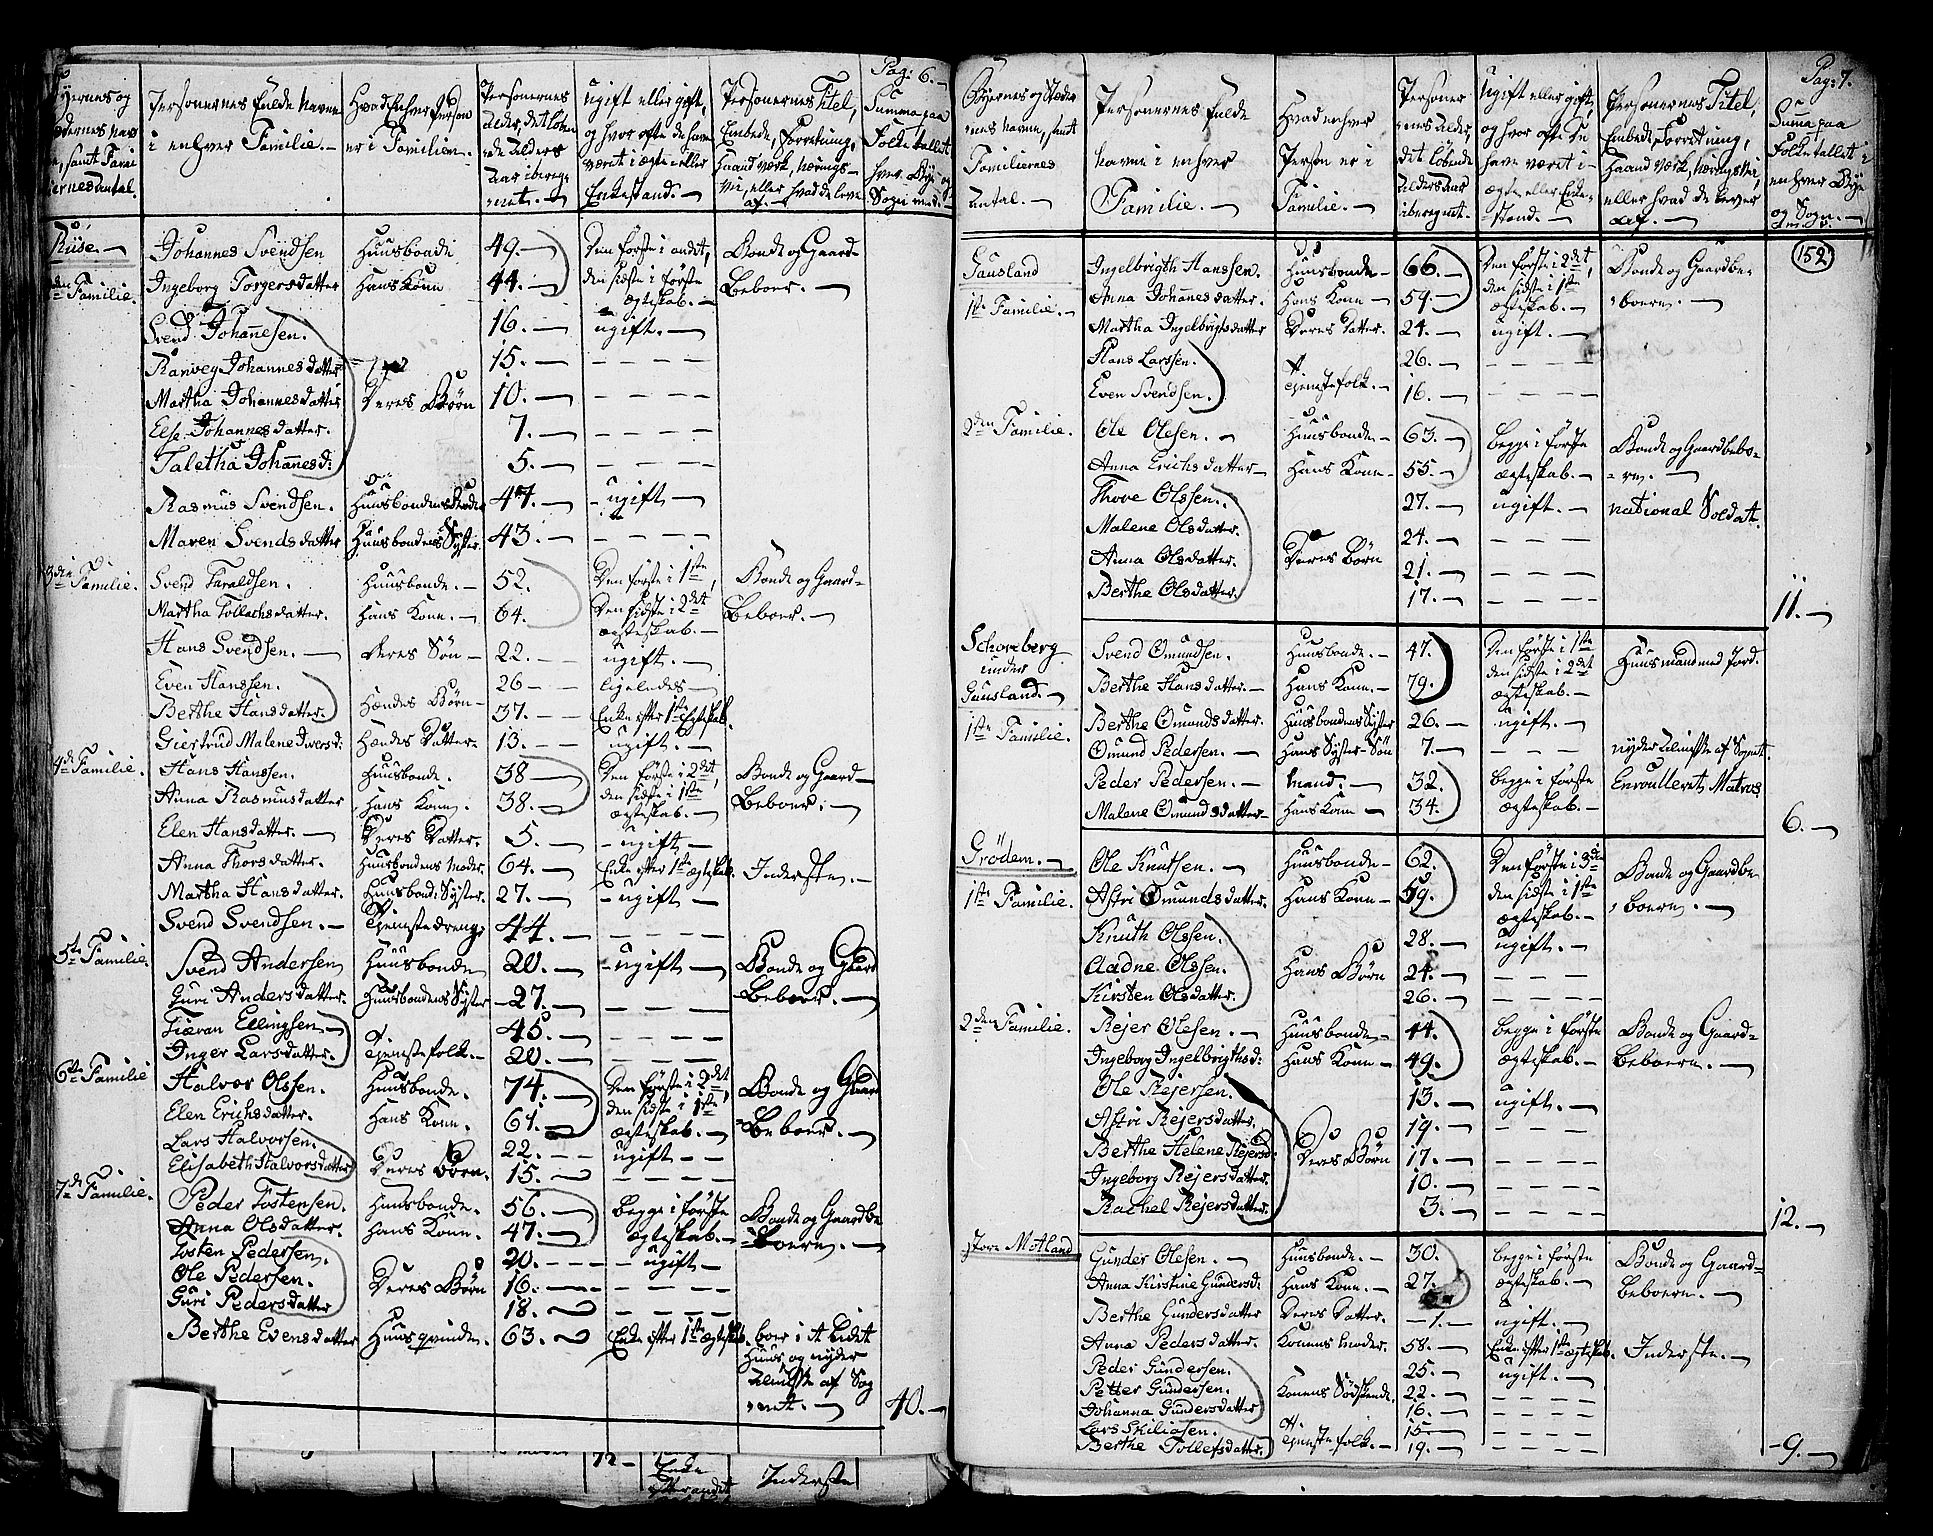 Pag: 6.
Personernes fulde Navne i enhver Familie.
Hvad Enhver Person er i Familien.
Riise.
Johannes Svendsen Huusbond 49. Den første i andet, Bonde og Gaard-
Ingeborg Torgersdatter Hans Konn 44. den sidste i første Beboer.
ægteskab.
Svend Johannesen. 16. ugift.
Ranveg Johannesdatter 15.
Martha Johannesdatter Deres Børn 10.
Else Johannesdatter. 7.
Taletha Johannesd: 5.
Rasmus Svendsen. Huusbondens Broder 47. ugift
Maren Svendsdatter Huusbondens Syster 43.
3den Familie. Svend Taraldsen. Huusbonde. 52. Den første i 1ste, Bonde og Gaard-
Martha Tollachsdatter. Hans Konn. 64. Den sidste i 2det Beboer.
ægteskab.
Hans Svendsen. Deres Søn 22. ugift.
Even Hanssen. 26 ligeledes
Berthe Hansdatter. Hændes Børn 37. Enke efter 1ste Egteskab.
Giertrud Malene Iversd: Hændes Datter 13. ugift.
4de Familie. Hans Hanssen. Huusbonde. 38 Den første i 2det, Bonde og Gaard-
Anna Rasmusdatter Hans Konn. 38. den sidste i 1ste Beboer.
ægteskab.
Elen Hansdatter. Deres Datter. 5. ugift.
Anna Thorsdatter. Huusbondens Moder 64. Enke efter 1ste ægteskab. Inderste.
Martha Hansdatter. Huusbond: Syster. 27. ugift
Svend Svendsen. Tjenestedreng 44.
5te Familie. Svend Andersen Huusbonde 20. ugift Bonde og Gaard
Guri Andersdatter. Huusbondens Syster 27. Beboer.
Tiæran Ellingsen 45.
Inger Larsdatter. Tjenestefolk. 20.
6te Familie Halvor Olssen. Huusbonde. 74. Den første i 2det, Bonde og Gaard
Elen Erichsdatter. Hans Konn. 61. den sidste i 1ste Beboer.
ægteskab.
Lars Halvorsen. 22. ugift
Elisabeth Halvorsdatter Deres Børn. 15.
7de Familie. Peder Tostensen. Huusbonde. 56. begge i første Bonde og Gaardbe
Anna Olsdatter. Hans Konn. 47. Egteskab. boern.
Tosten Pedersen. 20. ugift
Ole Pedersen. Deres Børn 16.
Guri Pedersdatter 18.
Berthe Evensdatter Huusqvinden. 63. Enke efter 1ste ægteskab. boer i et Lidet
Huus og nyder
Almisse af Sog
net.
40.
72 Enke Inderste
Pag: 7.
Byernes og Stæder
nes Navne, samt
Familiernes
Antal.
Personernes fulde
Navne i enhver
Familie.
Hvad enhver
Person er i
Familie.
Personer
nes Alder,
det løbende
Alders Aar
iberegnet.
Ugift eller gift,
og hvor ofte de
have været i
ægte eller Enke-
stand.
Personernes Titel,
Embede, Forretning,
Haandværk, Næringsvei,
eller hvad de lever
af.
Summa paa
Folketallet i
enhver Bye
og Sogn.
152
Gausland Ingelbrigth Hanssen. Huusbonde 66. Den første i 2det, Bonde og Gaardbe-
1ste Familie. Anna Johanesdatter. Hans Konn 59. den sidste i 1ste boern.
ægteskab.
Martha Ingelbrigtsdatter Deres Datter. 24. ugift.
Hans Larssen. 26.
Even Svendsen. Tjenestefolk. 16.
2den Familie. Ole Olesen. Huusbonde 63. begge i første Bonde og Gaardbebo-
Anna Erichsdatter Hans Konn 55. ægteskab. ern.
Thove Olssen. 27. ugift. national Soldat.
Malene Olsdatter. 24.
Anna Olsdatter. Deres Børn 21.
Berthe Olsdatter. 17.
11.
Schoreberg Svend Omundsen. Huusbonde. 47. Den første i 1ste Huusmand med Jord.
under Berthe Hansdatter. Hans Konn. 79. den sidste i 2det
Gausland. ægteskab.
1ste Familie. Berthe Omundsdatter. Huusbondens Syster 26. ugift.
Omund Pedersen. Hans Syster-Søn 7. nyder Almisse af Sognet.
Peder Pedersen. Mand. 32. begge i første Enroulleret Matros
Malene Omundsdatter Hans Konn 34. ægteskab.
6.
Grödem. Ole Knutsen. Huusbonde 62. Den første i 3die Bonde og Gaardbe
1ste Familie. Astri Omundsdatter. Hans Konn 59. den sidste i 1ste boern.
ægteskab.
Knuth Olssen. 28. ugift.
Aadne Olssen. Hans Børn 24.
Kirsten Olsdatter. 26.
2den Familie. Rejer Olesen. Huusbonde 44. begge i første Bonde og Gaard-
Ingeborg Ingelbrigthsd: Hans Konn 49. ægteskab. beboern.
Ole Rejersen. 13. ugift.
Astri Rejersdatter. 19.
Berthe Helene Rejersd: Deres Børn 17.
Ingeborg Rejersdatter. 10.
Rachel Rejersdatter. 3.
12.
store Motland Gunder Olesen. Huusbonde. 30. begge i første Bonde og Gaard-
Anna Kirstine Gundersd: Hans Konn. 27. ægteskab. beboern.
Berthe Gundersdatter Deres Datter. 1. ugift.
Anna Pedersdatter. Konens Moder. 58. Enke efter 1ste ægteskab. Inderste.
Peder Gundersen. 25. ugift.
Petter Gundersen. Konens Sødskende. 22.
Johanna Gundersdatter 16.
Lars Skiliasen. 15
Berthe Tollefsdatter. Tjenestefolk. 19.
9.